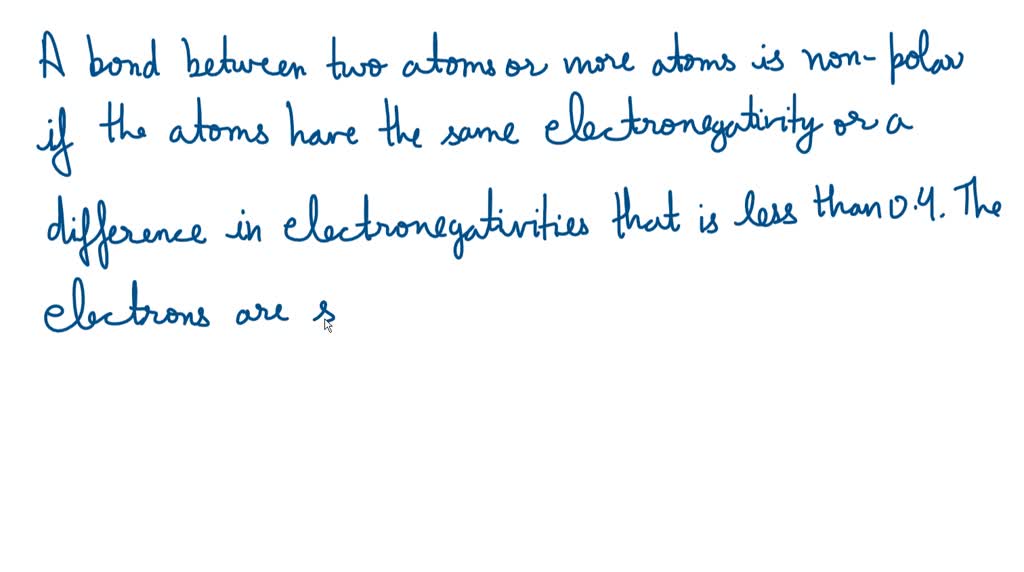 A bond between two atoms or more atoms is non-polar
if the atoms have the same electronegativity or a
difference in electronegativities that is less than 0.4. The
electrons are s